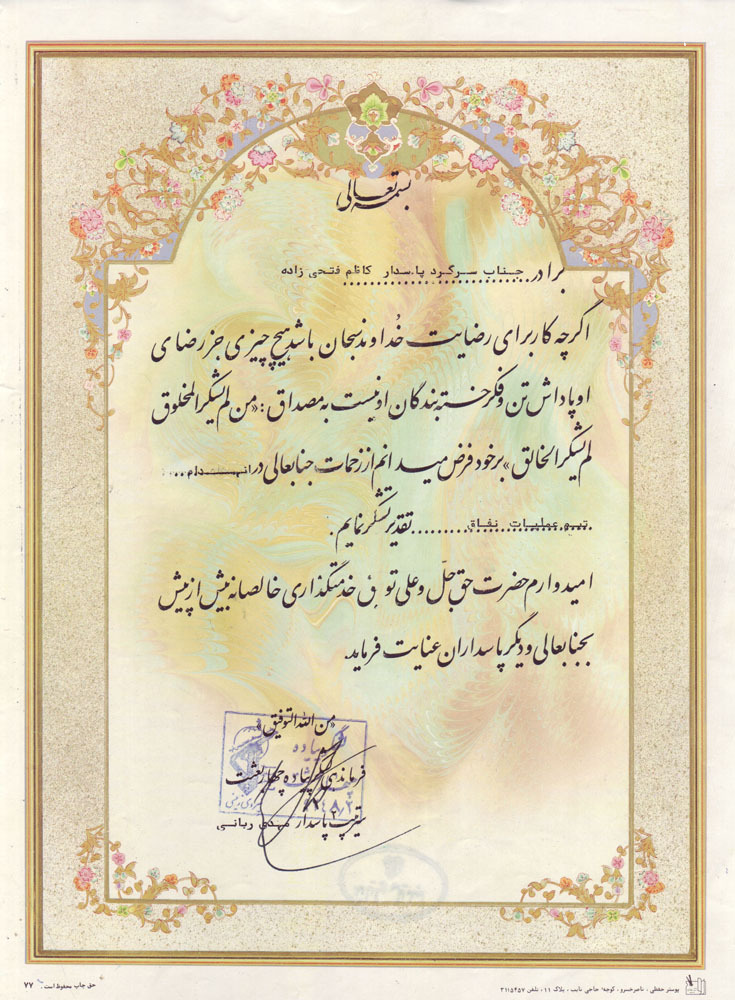 بسمه تعالی
برادر جناب سرگرد پاسدار کاظم فتحی زاده
اگرچه کار برای رضایت خداوند سبحان باشد هیچ چیزی جز رضای
او پاداش تن و فکر خسته بندگان او نیست به مصداق: «من لم یشکر المخلوق
لم یشکر الخالق» بر خود فرض میدانم از زحمات جنابعالی در انهدام
تیم عملیات نفاق تقدیر و تشکر نمایم.
امیدوارم حضرت حق جل و علی توفیق خدمتگذاری خالصانه بیش از پیش
بجنابعالی و دیگر پاسداران عنایت فرماید.
«من الله التوفیق»
فرماندهی لشکر پیاده چهار بعثت
سرتیپ ۲ پاسدار مهدی ربانی
پوستر حفظی، ناصرخسرو، کوچه حاجی نایب، پلاک ۱۱، تلفن ۳۱۱۵۴۵۷
حق چاپ محفوظ است. ۷۷